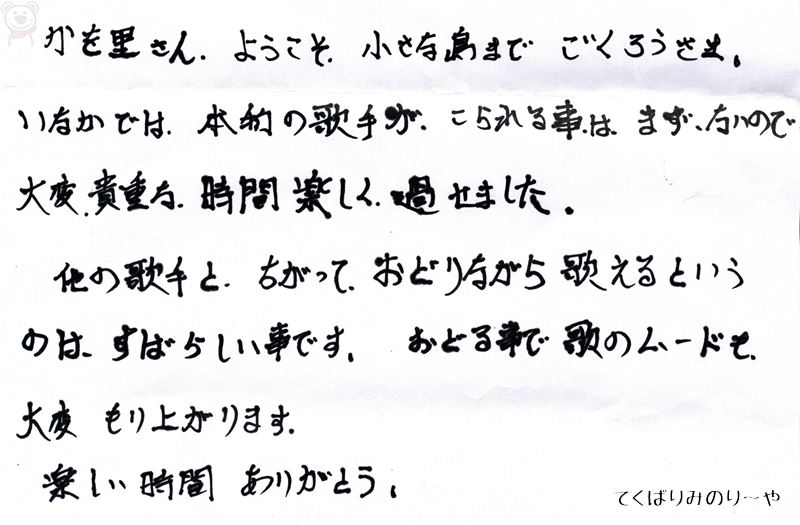 かを里さん、ようこそ、小さな島まで ごくろうさま。
いなかでは、本物の歌手が、こられる事は、まず、ないので
大変、貴重な、時間 楽しく、過せました。
他の歌手と、ちがって、おどりながら 歌えるという
のは、すばらしい事です。 おどる事で 歌のムードも、
大変 もり上がります。
楽しい時間 ありがとう。
てくばりみのり〜や